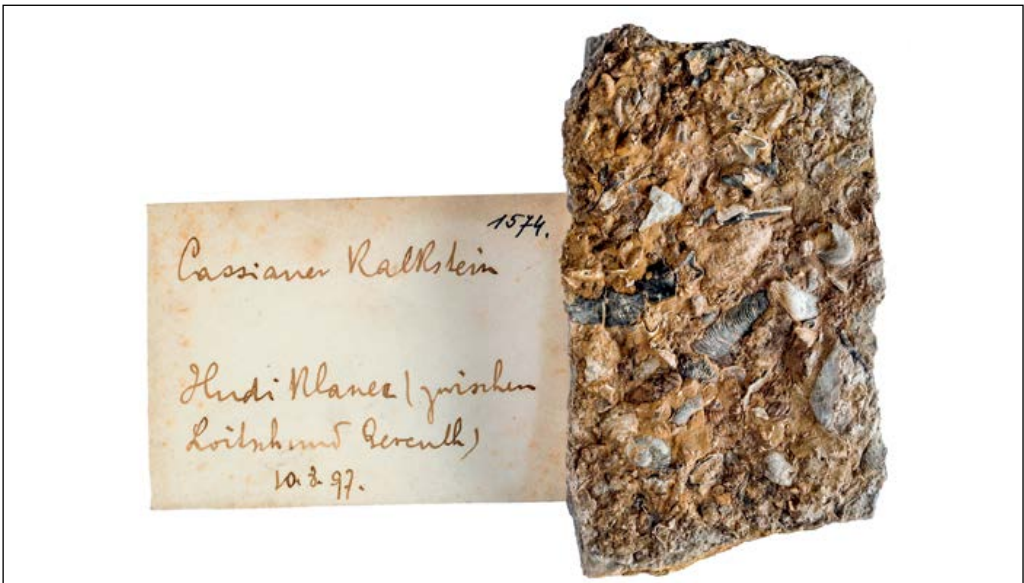 1574.
Cassianer Kalkstein
Hudi Klanec (zwischen
Loitsch und Gereuth)
10. 8. 97.